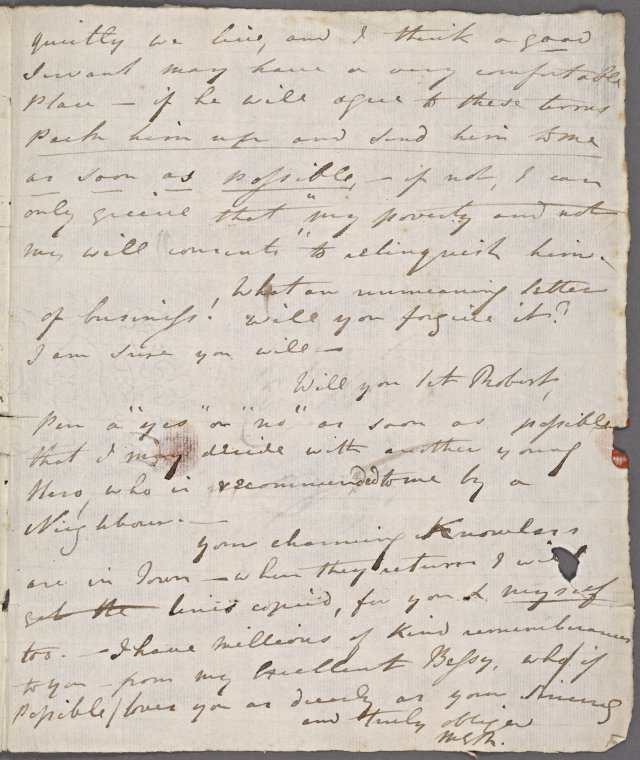 quietly we live, and I think a good
Servant may have a very comfortable
Place – if he will agree to these terms
pack him up and send him to me
as soon as possible, – if not, I can
only grieve that "my poverty and not
my will consents" to relinquish him.
What an unmeaning letter
of business! Will you forgive it?
I am sure you will –
Will you let Robert,
Pen a "yes" or "no" as soon as possible
that I may decide with another young
Hero, who is recommended to me by a
Neighbour. –
your charming Knowles's
are in Town – when they return I will
get the lines copied, for you & myself
too. – I have millions of kind remembrances
to you – from my Excellent Bessy, who / if
possible / loves you as dearly as your Sincere
and truly obliged